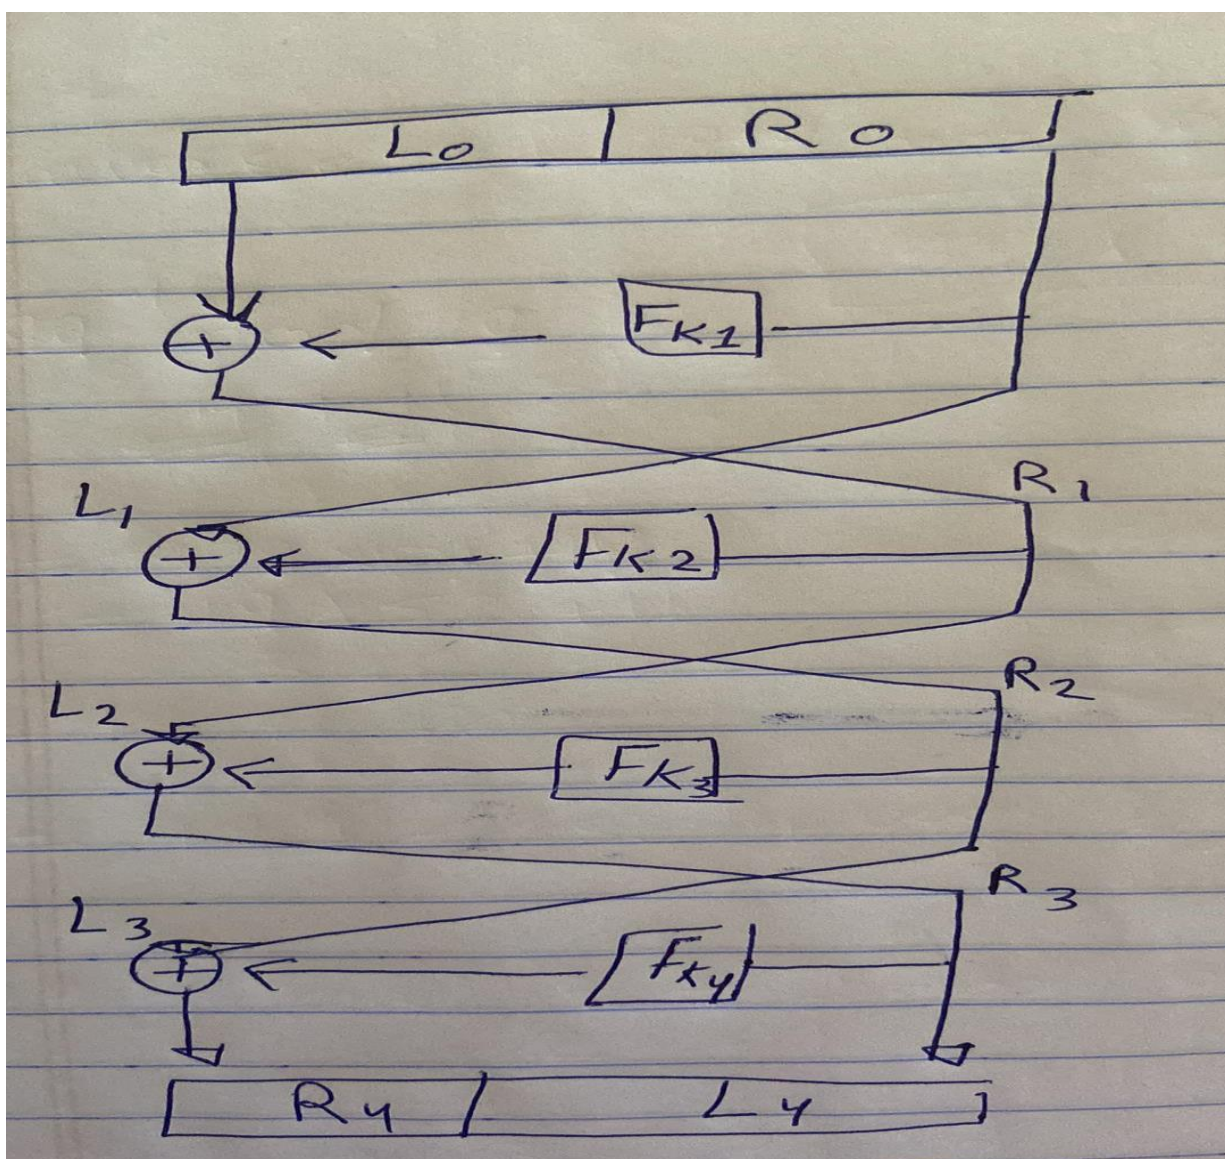 L0 R0
+ FK1
L1 R1
+ FK2
L2 R2
+ FK3
L3 R3
+ FK4
R4 L4